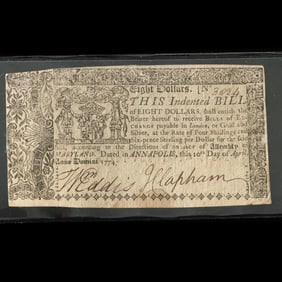 Eight Dollars. [N
THIS Indented BILL
of EIGHT DOLLARS, shall entitle the
Bearer hereof to receive BILLS of EX-
CHANGE payable in London, or Gold and
Silver, at the Rate of Four Shillings and
Six-pence Sterling per Dollar for the said
Bill, according to the Directions of an ACT of Assembly.
MARYLAND. Dated in ANNAPOLIS, this 10th Day of April,
Anno Domini 1774.
W Eddis J Clapham